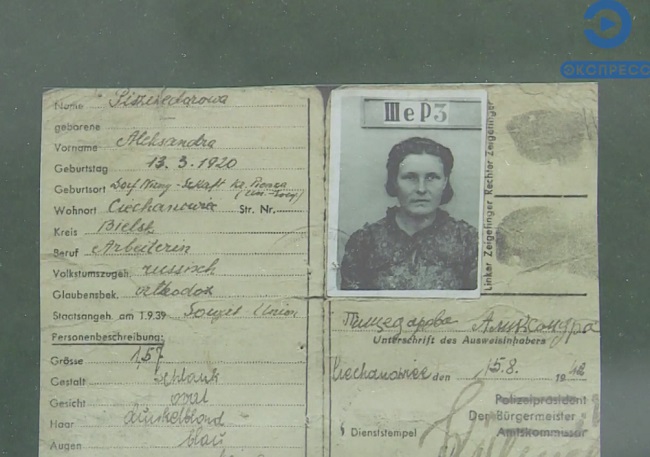 ЭКОПРЕСС
Name
geborene
Vorname Aleksandra
Geburtstag 13.3.1920
Geburtsort Dorf
Wohnort Ciechanowiec Str. Nr.
Kreis Bielsk
Beruf Arbeiterin
Volkstumszugeh. russisch
Glaubensbek. ortodox
Staatsangeh. am 1.9.39 Union
Personenbeschreibung:
Grösse 1,57
Gestalt schlank
Gesicht oval
Haar dunkelblond
Augen blau
Ше Р3
Rechter Zeigefinger
Linker Zeigefinger
Пищедарова Александра
Unterschrift des Ausweisinhabers
Ciechanowiec den 15.8. 1942
Polizeipräsident
Der Bürgermeister
Amtskommissar
Dienststempel